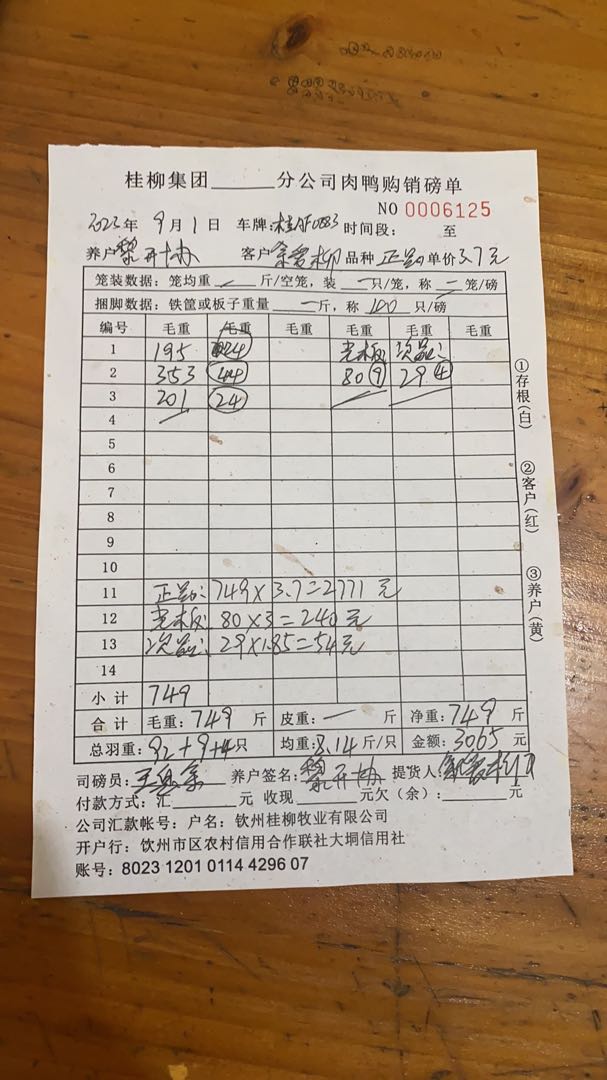 桂柳集团______分公司肉鸭购销磅单
NO 0006125
2023年 9月1日 车牌: 时间段: 至
养户黎开协 客户 品种 正品 单价3.7元
笼装数据: 笼均重 一 斤/空笼, 装 一 只/笼, 称 二 笼/磅
捆脚数据: 铁筐或板子重量 一 斤, 称 100 只/磅
编号 毛重 毛重 毛重 毛重 毛重 毛重
1 195 24 光板 次品:
2 353 44 80 9 29 4
3 201 24
4
5
6
7
8
9
10
11 正品: 749×3.7=2771元
12 光板: 80×3=240元
13 次品: 29×1.85=54元
14
小计 749
合计 毛重: 749 斤 皮重: 一 斤 净重: 749 斤
总羽重: 92+9+4只 均重: 8.14斤/只 金额: 3065 元
司磅员: 养户签名: 黎开协 提货人:
付款方式: 汇______元 收现______元欠(余): ______元
公司汇款帐号: 户名: 钦州桂柳牧业有限公司
开户行: 钦州市区农村信用合作联社大垌信用社
账号: 8023 1201 0114 4296 07
①存根(白)
②客户(红)
③养户(黄)